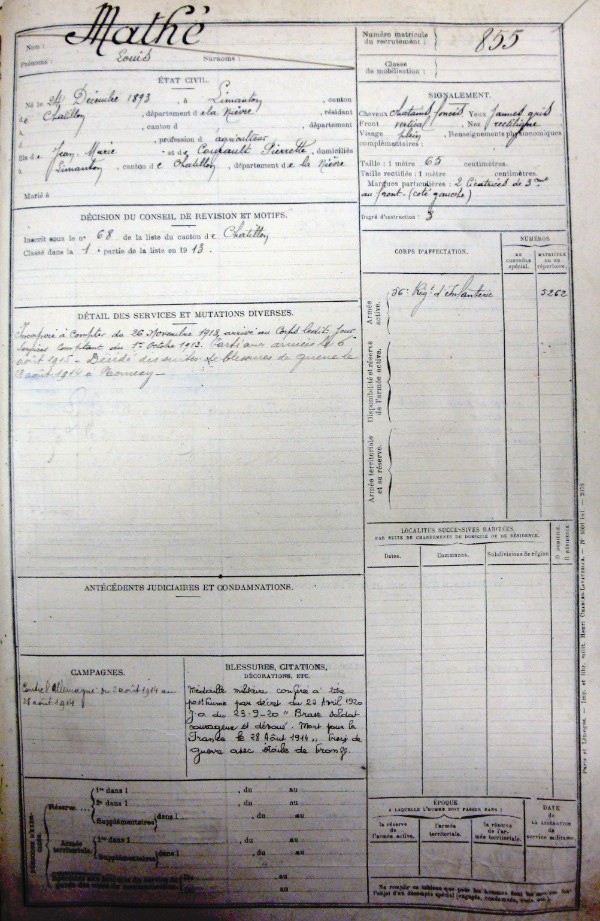 Mathé
Nom :
Prénoms : Louis Surnoms :
Numéro matricule
du recrutement : 855
Classe
de mobilisation :
ÉTAT CIVIL.
Né le 24 Décembre 1893, à Limanton, canton
de Chatillon, département de la Nièvre, résidant
à , canton d , département
d , profession d agriculteur
fils de Jean Marie et de Courault Pierrette, domiciliés
à Limanton, canton de Chatillon, département de la Nièvre
Marié à
SIGNALEMENT.
Cheveux chatains foncés Yeux jaunes gris
Front vertical Nez rectiligne
Visage plein Renseignements physionomiques
complémentaires :
Taille : 1 mètre 65 centimètres.
Taille rectifiée : 1 mètre centimètres.
Marques particulières : 2 cicatrices de 3
au front (coté gauche)
Degré d'instruction : 3
DÉCISION DU CONSEIL DE RÉVISION ET MOTIFS.
Inscrit sous le n° 68 de la liste du canton de Chatillon
Classé dans la 1e partie de la liste en 1913.
CORPS D'AFFECTATION.
NUMÉROS
AU CONTRÔLE SPÉCIAL.
MATRICULE OU AU RÉPERTOIRE.
Armée active.
56e Régt d'Infanterie 5262
Disponibilité et réserve de l'armée active.
Armée territoriale et sa réserve.
DÉTAIL DES SERVICES ET MUTATIONS DIVERSES.
Incorporé à compter du 26 Novembre 1913, arrivé au Corps ledit jour
Services comptant du 1er Octobre 1913. Parti aux armées le 6
août Décédé des suites de blessures de guerre le
28 août 1914 à
LOCALITÉS SUCCESSIVES HABITÉES,
PAR SUITE DE CHANGEMENTS DE DOMICILE OU DE RÉSIDENCE.
Dates. Communes. Subdivisions de région D domicile. R résidence.
ANTÉCÉDENTS JUDICIAIRES ET CONDAMNATIONS.
CAMPAGNES.
Contre l'Allemagne du 2 août 1914 au
28 août 1914
BLESSURES, CITATIONS,
DÉCORATIONS, ETC.
Médaille militaire conférée à titre
posthume par décret du 22 Avril 1920
J.O. du 23-9-20 "Brave soldat
courageux et dévoué. Mort pour la
France le 28 Août 1914". Croix de
guerre avec étoile de bronze.
Réserve...
1re dans l , du au
2e dans l , du au
Supplémentaires dans l , du au
, du au
Armée territoriale.
1re dans l , du au
Supplémentaires dans l , du au
ÉPOQUE
À LAQUELLE L'HOMME DOIT PASSER DANS :
la réserve de l'armée active.
l'armée territoriale.
la réserve de l'armée territoriale.
DATE
DE LA LIBÉRATION
du service militaire.